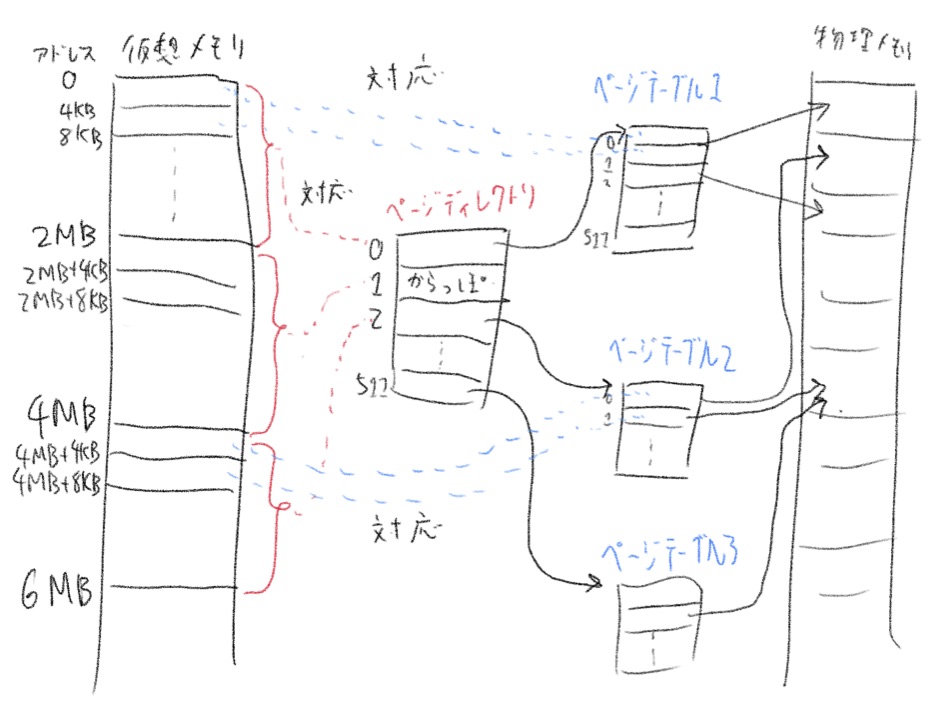 アドレス
仮想メモリ
0
4KB
8KB
2MB
2MB+4KB
2MB+8KB
4MB
4MB+4KB
4MB+8KB
6MB
対応
対応
対応
ページディレクトリ
0
1
からっぽ
2
511
ページテーブル1
0
1
2
511
ページテーブル2
0
1
ページテーブル3
物理メモリ